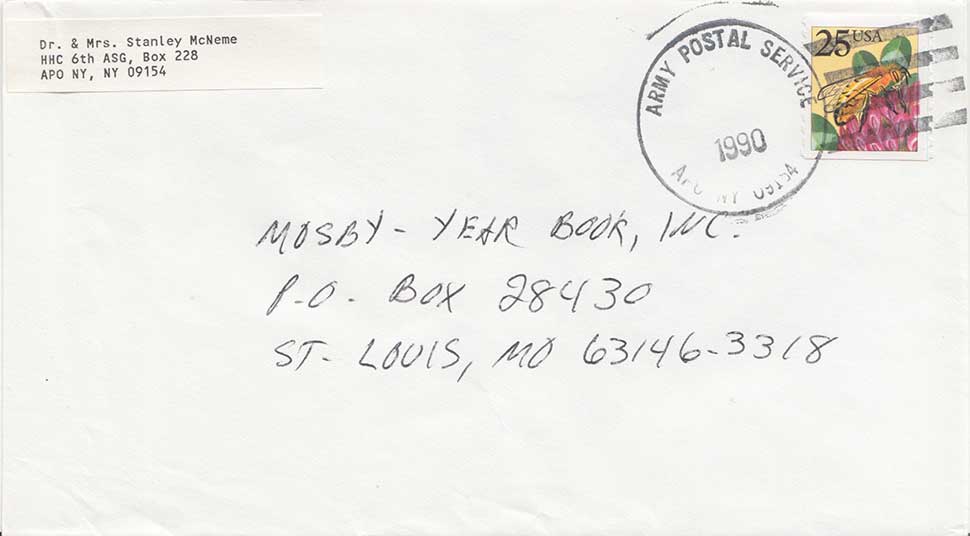 Dr. & Mrs. Stanley McNeme
HHC 6th ASG, Box 228
APO NY, NY 09154
ARMY POSTAL SERVICE
1990
APO NY 09154
25 USA
MOSBY - YEAR BOOK, INC.
P.O. BOX 28430
ST. LOUIS, MO 63146-3318